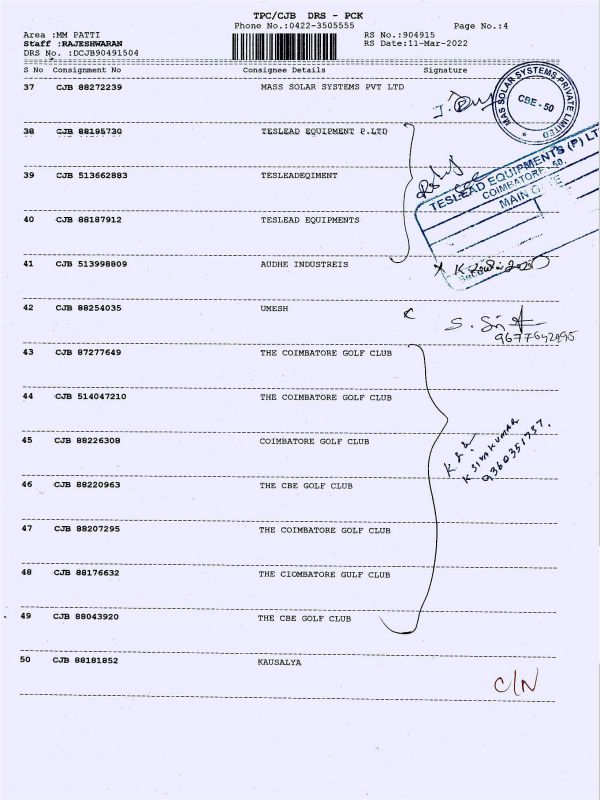 TPC/CJB DRS - PCK
Phone No.:0422-3505555 Page No.:4
Area :MM PATTI RS No.:904915
Staff :RAJESHWARAN RS Date:11-Mar-2022
DRS No. :DCJB90491504
S No Consignment No Consignee Details Signature
37 CJB 88272239 MASS SOLAR SYSTEMS PVT LTD
MAS SOLAR SYSTEMS PRIVATE LIMITED
CBE - 50
38 CJB 88195730 TESLEAD EQUIPMENT P.LTD
39 CJB 513662883 TESLEADEQIMENT
TESLEAD EQUIPMENTS (P) LT
COIMBATORE - 50.
MAIN G
40 CJB 88187912 TESLEAD EQUIPMENTS
41 CJB 513998809 AUDHE INDUSTREIS
42 CJB 88254035 UMESH
43 CJB 87277649 THE COIMBATORE GOLF CLUB
44 CJB 514047210 THE COIMBATORE GOLF CLUB
45 CJB 88226308 COIMBATORE GOLF CLUB
K SIVAKUMAR
9360351757.
46 CJB 88220963 THE CBE GOLF CLUB
47 CJB 88207295 THE COIMBATORE GOLF CLUB
48 CJB 88176632 THE CIOMBATORE GULF CLUB
49 CJB 88043920 THE CBE GOLF CLUB
50 CJB 88181852 KAUSALYA
C/N